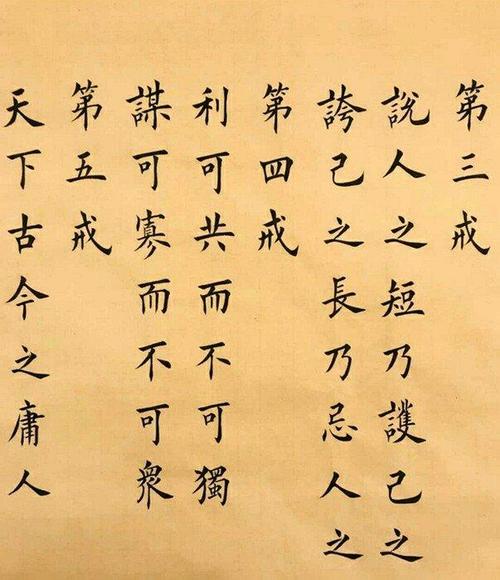 第三戒
說人之短乃護己之
誇己之長乃忌人之
第四戒
利可共而不可獨
謀可寡而不可眾
第五戒
天下古今之庸人